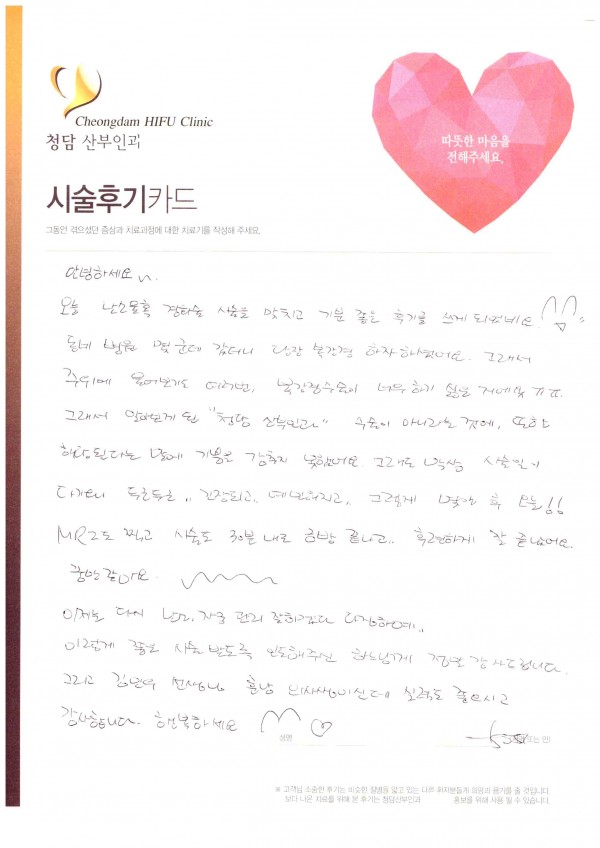 Cheongdam HIFU Clinic
청담 산부인과
따뜻한 마음을
전해주세요.
시술후기카드
그동안 겪으셨던 증상과 치료과정에 대한 치료기를 작성해 주세요.
안녕하세요
오늘 난소물혹 경화술 시술을 맞치고 기분 좋은 후기를 쓰게 되었네요.
동네 병원 몇군데 갔더니 당장 복강경 하자 하셨어요. 그래서
주위에 물어보기도 하며, 복강경수술이 너무 하기 싫은 거예요 ㅠㅠ.
그래서 알아보게 된 "청담 산부인과" 수술이 아니라는 것에, 또한
해당된다는 말에 기쁨을 감추지 못했어요. 그래도 막상 시술일이
다가오니 두근두근,, 긴장되고,, 예민해지고,, 그렇게 몇일 후 오늘!!
MRI도 찍고 시술도 30분 내로 금방 끝나고.. 후련하게 잘 끝났어요.
꿈만 같아요.
이제는 다시 난소, 자궁 관리 잘하겠다 다짐하며,,
이렇게 좋은 시술 받도록 인도해주신 하느님께 정말 감사드립니다.
그리고 김 선생님 훈남 의사쌤이신데 실력도 좋으시고
감사합니다. 행복하세요 ♡
성명
(또는 인)
※ 고객님 소중한 후기는 비슷한 질병을 앓고 있는 다른 환자분들께 희망과 용기를 줄 것입니다.
보다 나은 치료를 위해 본 후기는 청담산부인과 홍보를 위해 사용 될 수 있습니다.